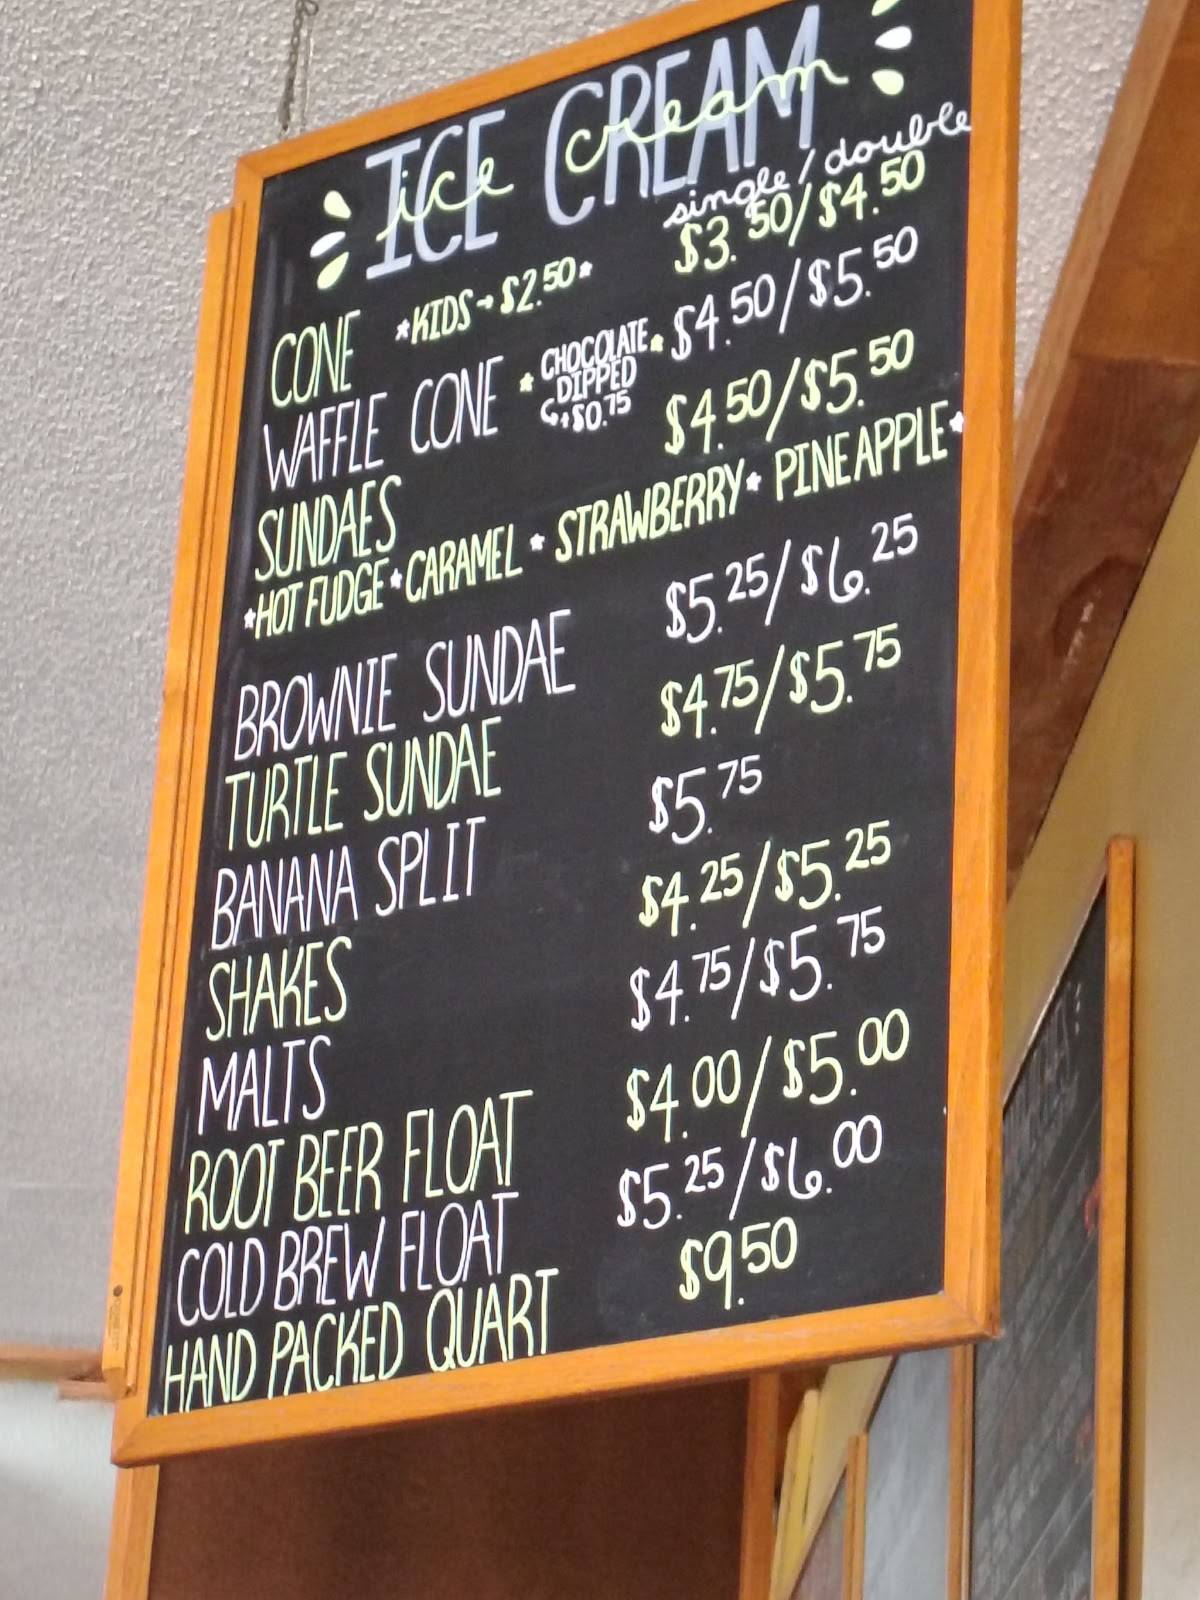 ICE CREAM
ice cream
single/double
CONE *KIDS→$2.50* $3.50/$4.50
WAFFLE CONE *CHOCOLATE* $4.50/$5.50
DIPPED
↳+$0.75
SUNDAES $4.50/$5.50
*HOT FUDGE*CARAMEL*STRAWBERRY*PINEAPPLE*
BROWNIE SUNDAE $5.25/$6.25
TURTLE SUNDAE $4.75/$5.75
BANANA SPLIT $5.75
SHAKES $4.25/$5.25
MALTS $4.75/$5.75
ROOT BEER FLOAT $4.00/$5.00
COLD BREW FLOAT $5.25/$6.00
HAND PACKED QUART $9.50